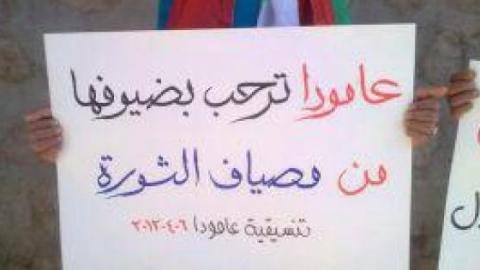 عامودا ترحب بضيوفها
من مصياف الثورة
تنسيقية عامودا ٦-٤-٢٠١٢